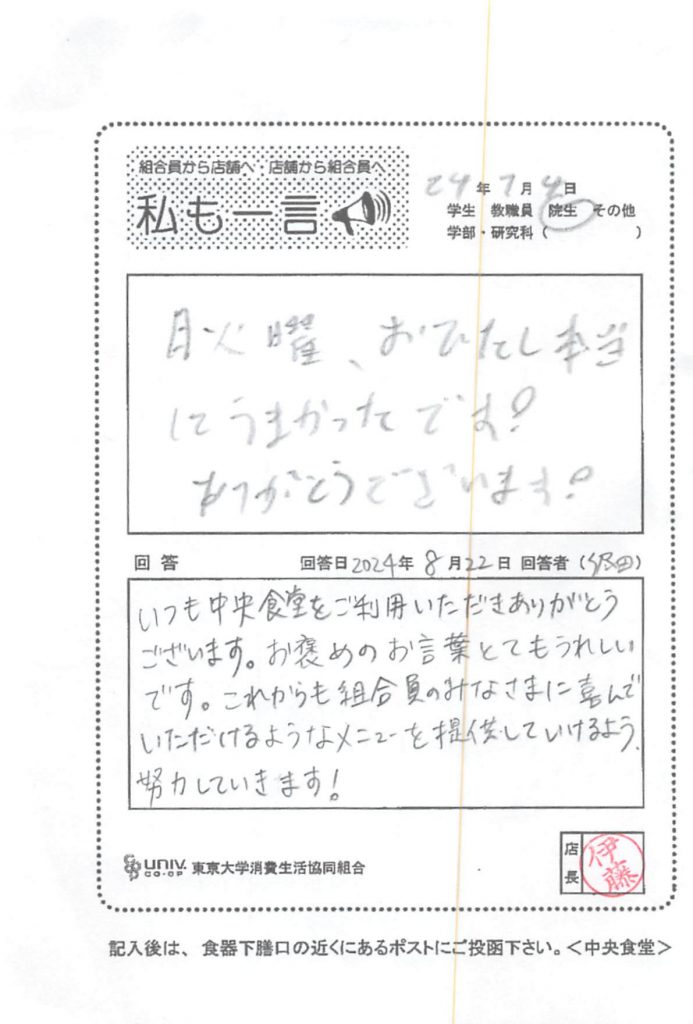 組合員から店舗へ・店舗から組合員へ
私も一言
24年7月4日
学生 教職員 院生 その他
学部・研究科（ ）
月火曜、おひたし本当
にうまかったです!
ありがとうございます!
回答 回答日2024年8月22日 回答者（ ）
いつも中央食堂をご利用いただきありがとう
ございます。お褒めのお言葉とてもうれしい
です。これからも組合員のみなさまに喜んで
いただけるようなメニューを提供していけるよう、
努力していきます!
UNIV.
CO-OP
東京大学消費生活協同組合
店長
伊藤
記入後は、食器下膳口の近くにあるポストにご投函下さい。＜中央食堂＞